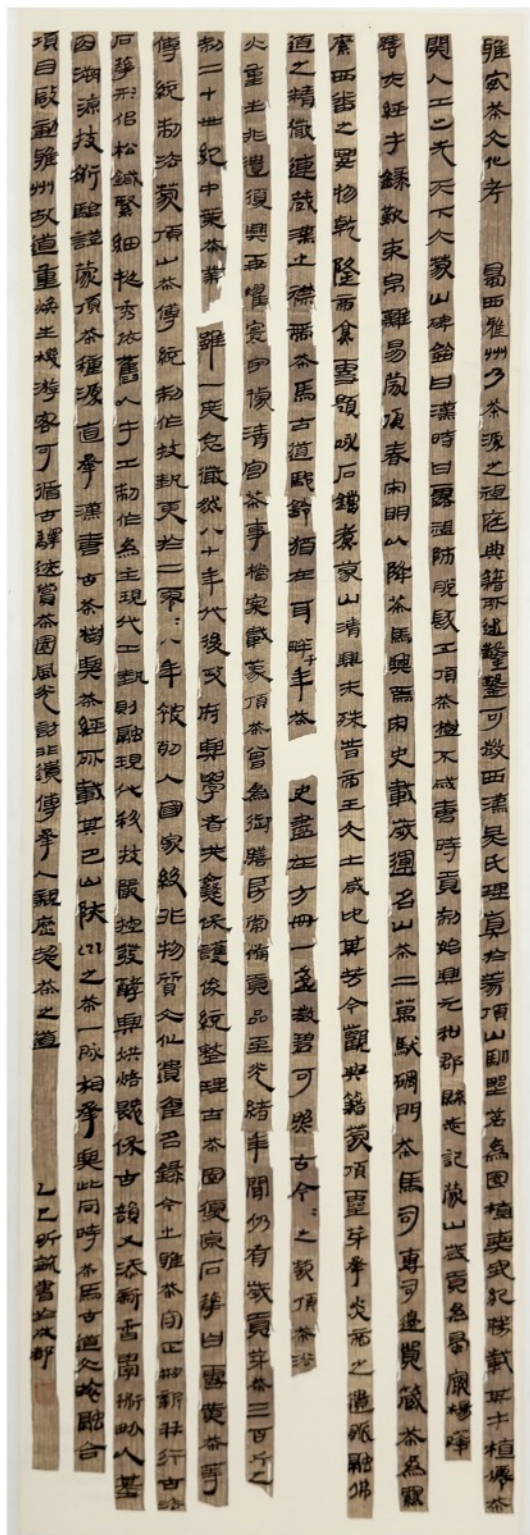 雅安茶文化考 蜀西雅州乃茶源之祖庭典籍所述鑿鑿可数西漢吳氏理真於蒙頂山馴野茗為園植輿地紀勝載其手植爆茶
開人工之先天下大蒙山碑銘曰漢時甘露祖師脫髮五頂茶樹不咸書時貢制始興元和郡縣志記蒙山歲貢為蜀最楊曄
膳夫經手錄歎束帛難易蒙頂春宋明以降茶馬興焉宋史載歲運名山茶二萬馱碉門茶馬司專司邊貿藏茶為羈
縻西番之要物乾隆雨食雪題咏石鐺煮家山清興未殊昔帝王文士咸比其芳今觀典籍蒙頂靈芽承炎帝之遺脈融佛
道之精微連蔵漢之襟帶茶馬古道駝鈴猶在耳畔千年茶 史盡在方冊一盞澈碧可照古今:之蒙頂茶浴
火重生非遺復興再耀寰宇據清宮茶事檔案載蒙頂茶曾為御膳房常備貢品至光緒年間仍有歲貢芽茶三百斤之
制二十世紀中葉茶業 雖一度危微然八十年代後政府與學者共襄保護係統整理古茶園復原石華甘露黃茶等
傳統制法蒙頂山茶傳統制作技藝更於二零::八年被列入國家級非物質文化遺產名錄今之雅茶守正創新并行古法
石華形侶松鍼緊細挺秀依舊以手工制作為主現代工藝則融現代科技嚴控發酵與烘焙既保古韻又添新香學術助以基
因溯源技術驗證蒙頂茶種源直承漢書古茶樹與茶經所載其巴山陝川之茶一脉相承與此同時茶馬古道文旅融合
項目啟動雅州故道重焕生機游客可循古驛迹賞茶園風光訪非遺傳承人親歷製茶之道 乙巳昕筑書於成都